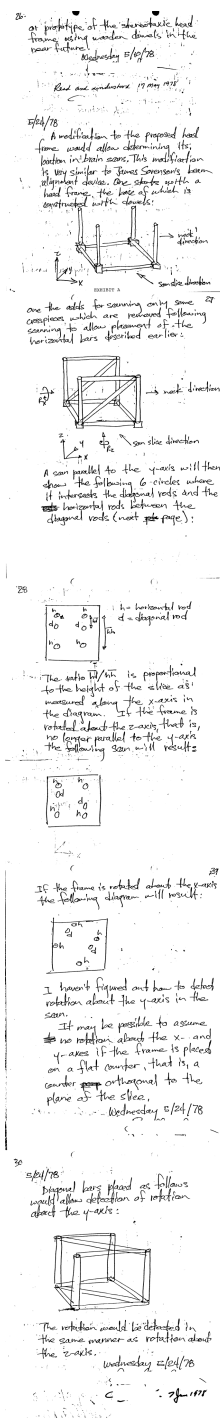 26
or prototype of the stereotaxic head
frame using wooden dowels in the
near future.
Wednesday 5/10/78
Read and understood 17 May 1978
5/24/78
A modification to the proposed head
frame would allow determining its
location in brain scans. This modification
is very similar to James Sorenson's beam
alignment device. One starts with a
head frame, the base of which is
constructed with dowels:
neck direction
z
y
x
scan slice direction
EXHIBIT A
27
one the adds for scanning only some
crosspieces which are removed following
scanning to allow placement of the
horizontal bars described earlier:
neck direction
z
y
x
scan slice direction
A scan parallel to the y-axis will then
show the following 6 circles where
it intersects the diagonal rods and the
horizontal rods between the
diagonal rods (next page):
28
h h
d d
h h
h = horizontal rod
d = diagonal rod
The ratio hd/hh is proportional
to the height of the slice as
measured along the x-axis in
the diagram. If the frame is
rotated about the z-axis, that is,
no longer parallel to the y-axis
the following scan will result:
h h
d
d
h h
29
If the frame is rotated about the x-axis
the following diagram will result:
h
d h
h d
h
I haven't figured out how to detect
rotation about the y-axis in the
scan.
It may be possible to assume
no rotation about the x- and
y-axes if the frame is placed
on a flat counter, that is, a
counter orthogonal to the
plane of the slice.
Wednesday 5/24/78
30
5/24/78
Diagonal bars placed as follows
would allow detection of rotation
about the y-axis:
The rotation would be detected in
the same manner as rotation about
the z-axis.
Wednesday 5/24/78
7 June 1978